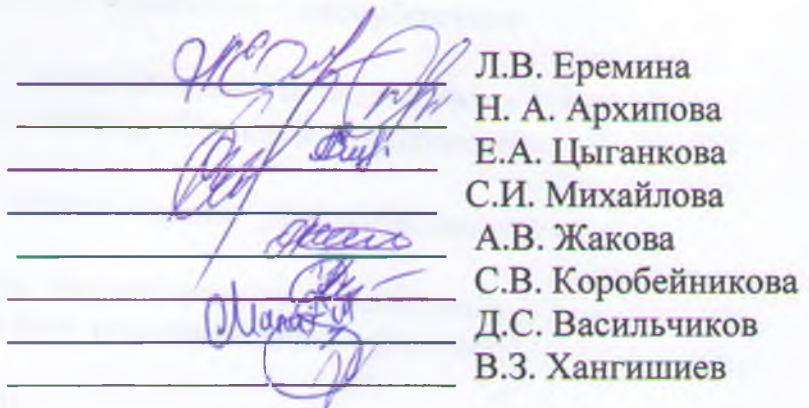 Л.В. Еремина
Н. А. Архипова
Е.А. Цыганкова
С.И. Михайлова
А.В. Жакова
С.В. Коробейникова
Д.С. Васильчиков
В.З. Хангишиев